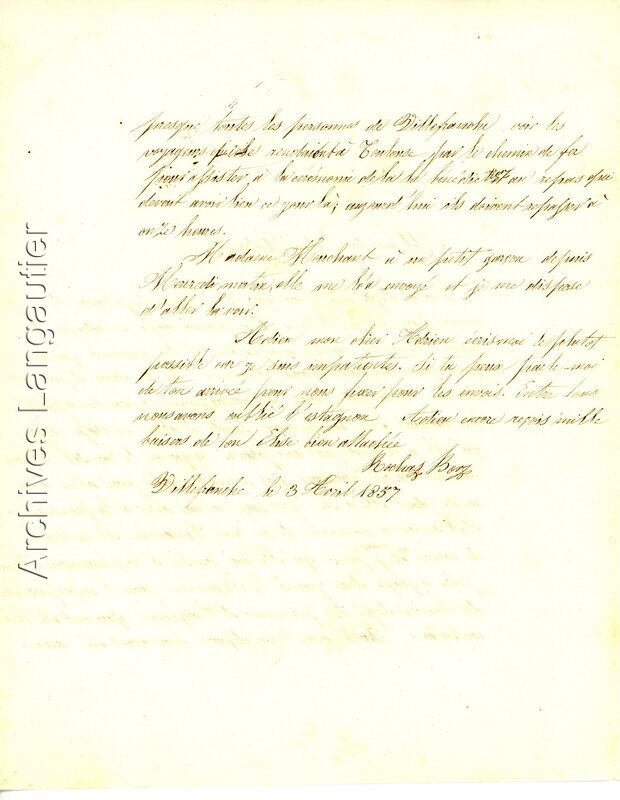 presque toutes les personnes de Villefranche voir les
voyageurs qui se rendaient à Toulouse par le chemin de fer
pour assister à la cérémonie de la bénédic et au repas qui
devait avoir lieu ce jour là; aujourd hui ils doivent repasser à
onze heures.
Madame Marchant à un petit garcon depuis
Mercredi matin, elle me l'a envoyé et je me dispose
d'aller la voir.
Adieu mon cher Adrien écris-moi le plutot
possible car je suis impatiente. Si tu peux parle-moi
de ton arrivée pour nous fixer pour les envois. Entre tous
nous avons oublié l'estagnon Adieu encore reçois mille
baisers de ton Elise bien attachée
Villefranche le 3 Avril 1857
Archives Langautier